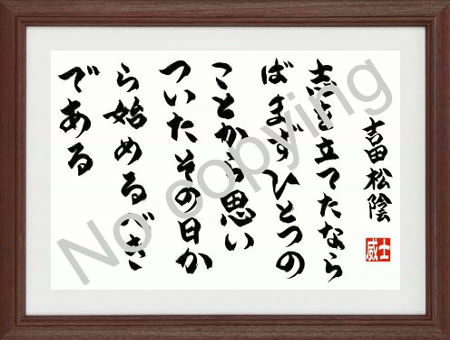 志を立てたなら
ばまずひとつの
ことから思い
ついたその日か
ら始めるべき
である
吉田松陰
威士
No copying